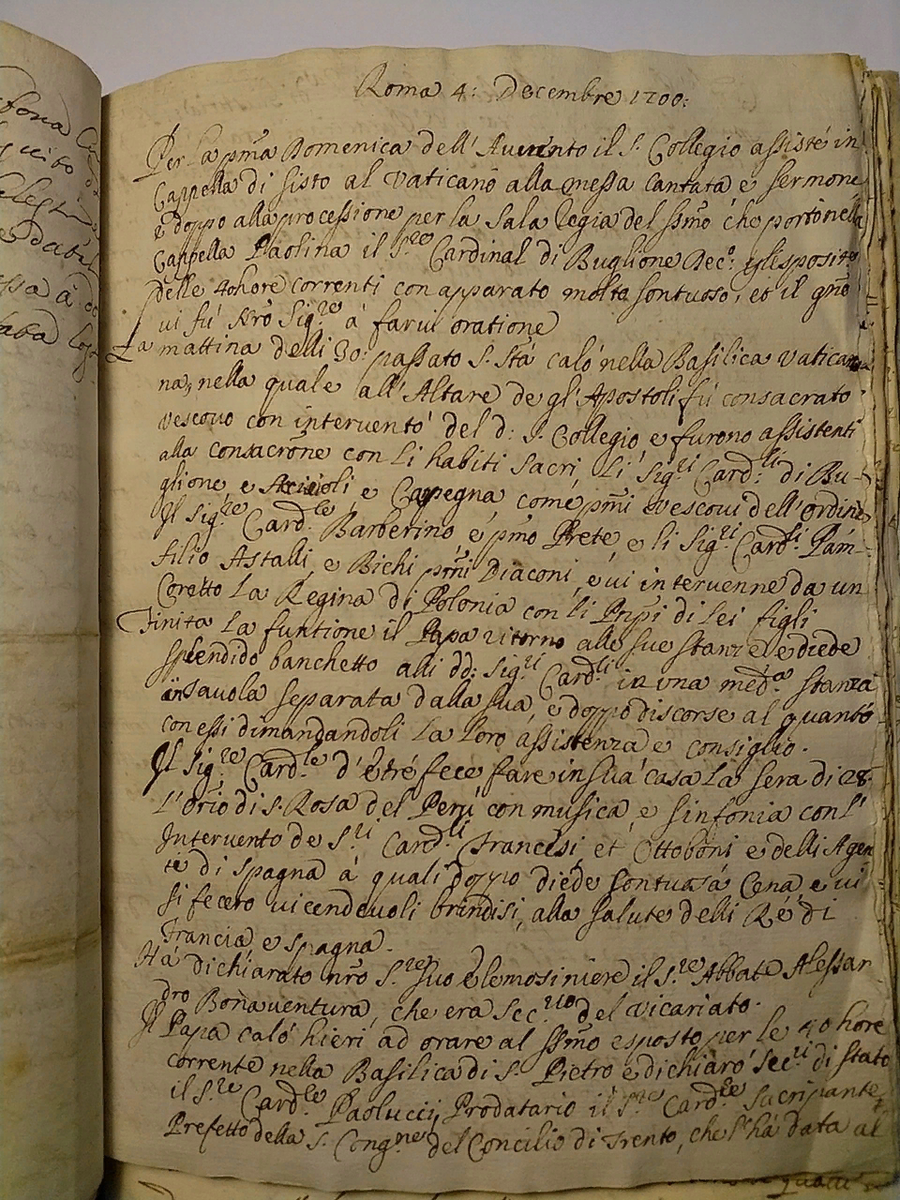 Roma 4: Decembre 1700:
Per la pma Domenica dell' Auuento il S. Collegio assisté in
Cappella di Sisto al Vaticano alla messa Cantata e sermone
e doppo alla processione per la Sala Regia del ssmo che portò nella
Cappella Paolina il S.re Cardinal di Buglione Dec.o
delle 40hore correnti con apparato molto sontuoso, et il gno
ui fu Nro Sig.re à farui oratione
La mattina delli 30: passato S. Stà calò nella Basilica Vatica-
na, nella quale all' Altare de gl' Apostoli fù consacrato
vescouo con interuento del d: S. Collegio e furono assistenti
alla consacrone con li habiti sacri li Sig.ri Card.li di Bu-
glione, e Acciaioli e Carpegna come pmi vescoui dell' ordine
Il Sig.re Card.le Barberino e pmo Prete e li Sig.ri Card.li Pam-
filio Astalli, e Bichi prmi Diaconi, e ui interuenne da un
Coretto la Regina di Polonia con li Pnpi di lei figli
Finita la funtione il Papa ritorno alle sue stanze e diede
splendido banchetto alli dd: Sig.ri Card.li in una med.a stanza
in tauola separata dalla sua, e doppo discorse al quanto
con essi dimandandoli la loro assistenza e consiglio.
Il Sig.re Card.le d' etré fece fare in sua casa la sera di 28:
l' Orio di S. Rosa del Perù con musica e sinfonia con l'
Interuento de S.ri Card.li Francesi, et Ottoboni e delli Agen
te di Spagna à quali doppo diede sontuosa Cena e ui
si fecero uicendeuoli brindisi, alla salute delli Ré di
Francia e Spagna.
Hà dichiarato nro S.re suo elemosiniere il S.re Abbate Alessan
dro Bonauentura, che era Sec.rio del Vicariato.
Il Papa calò hieri ad orare al ssmo esposto per le 40 hore
corrente nella Basilica di S. Pietro e dichiarò Sec.ri di Stato
il S.re Card.le Paolucci, Prodatario il S.re Card.le Sacripante,
Prefetto della S. Cong.ne del Concilio di Trento, che l' hà data al